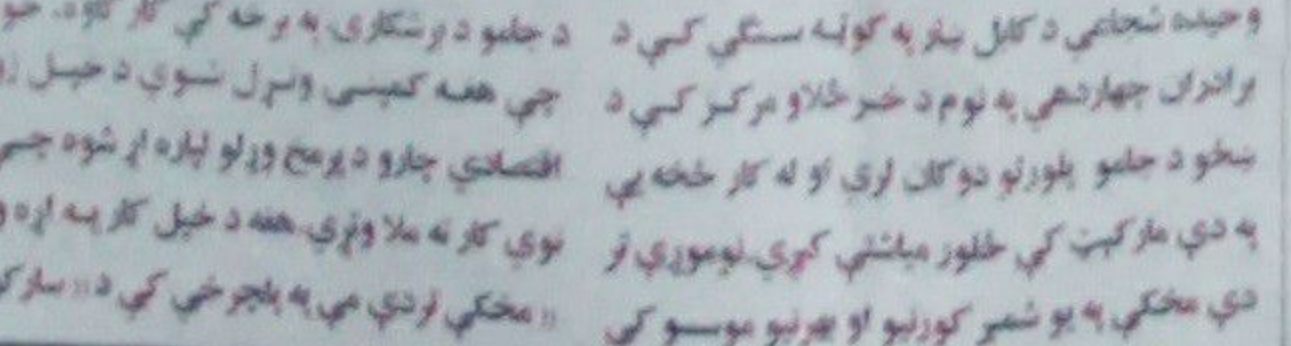 وحيده شجاعي د کابل ښار په کوټه سنګي کې د
برادران چهاردهي په نوم د خرڅلاو مرکز کې د
ښځو د جامو پلورلو دوکان لري او له کار څخه يې
په دې مارکېټ کې څلور مياشتې کېږي. نوموړې تر
دې مخکې په يو شمېر کورنيو او بهرنيو موسسو کې
د جامو د پرېکارۍ په برخه کې کار کاوه.
چې هغه کمېسى وتړل شوې د خپل
اقتصادي چارو د پرمخ وړلو لپاره اړ شوه چې
نوي کار ته ملا وتړي. هغه د خپل کار په اړه
« مخکې تردې مې په پلچرخي کې د